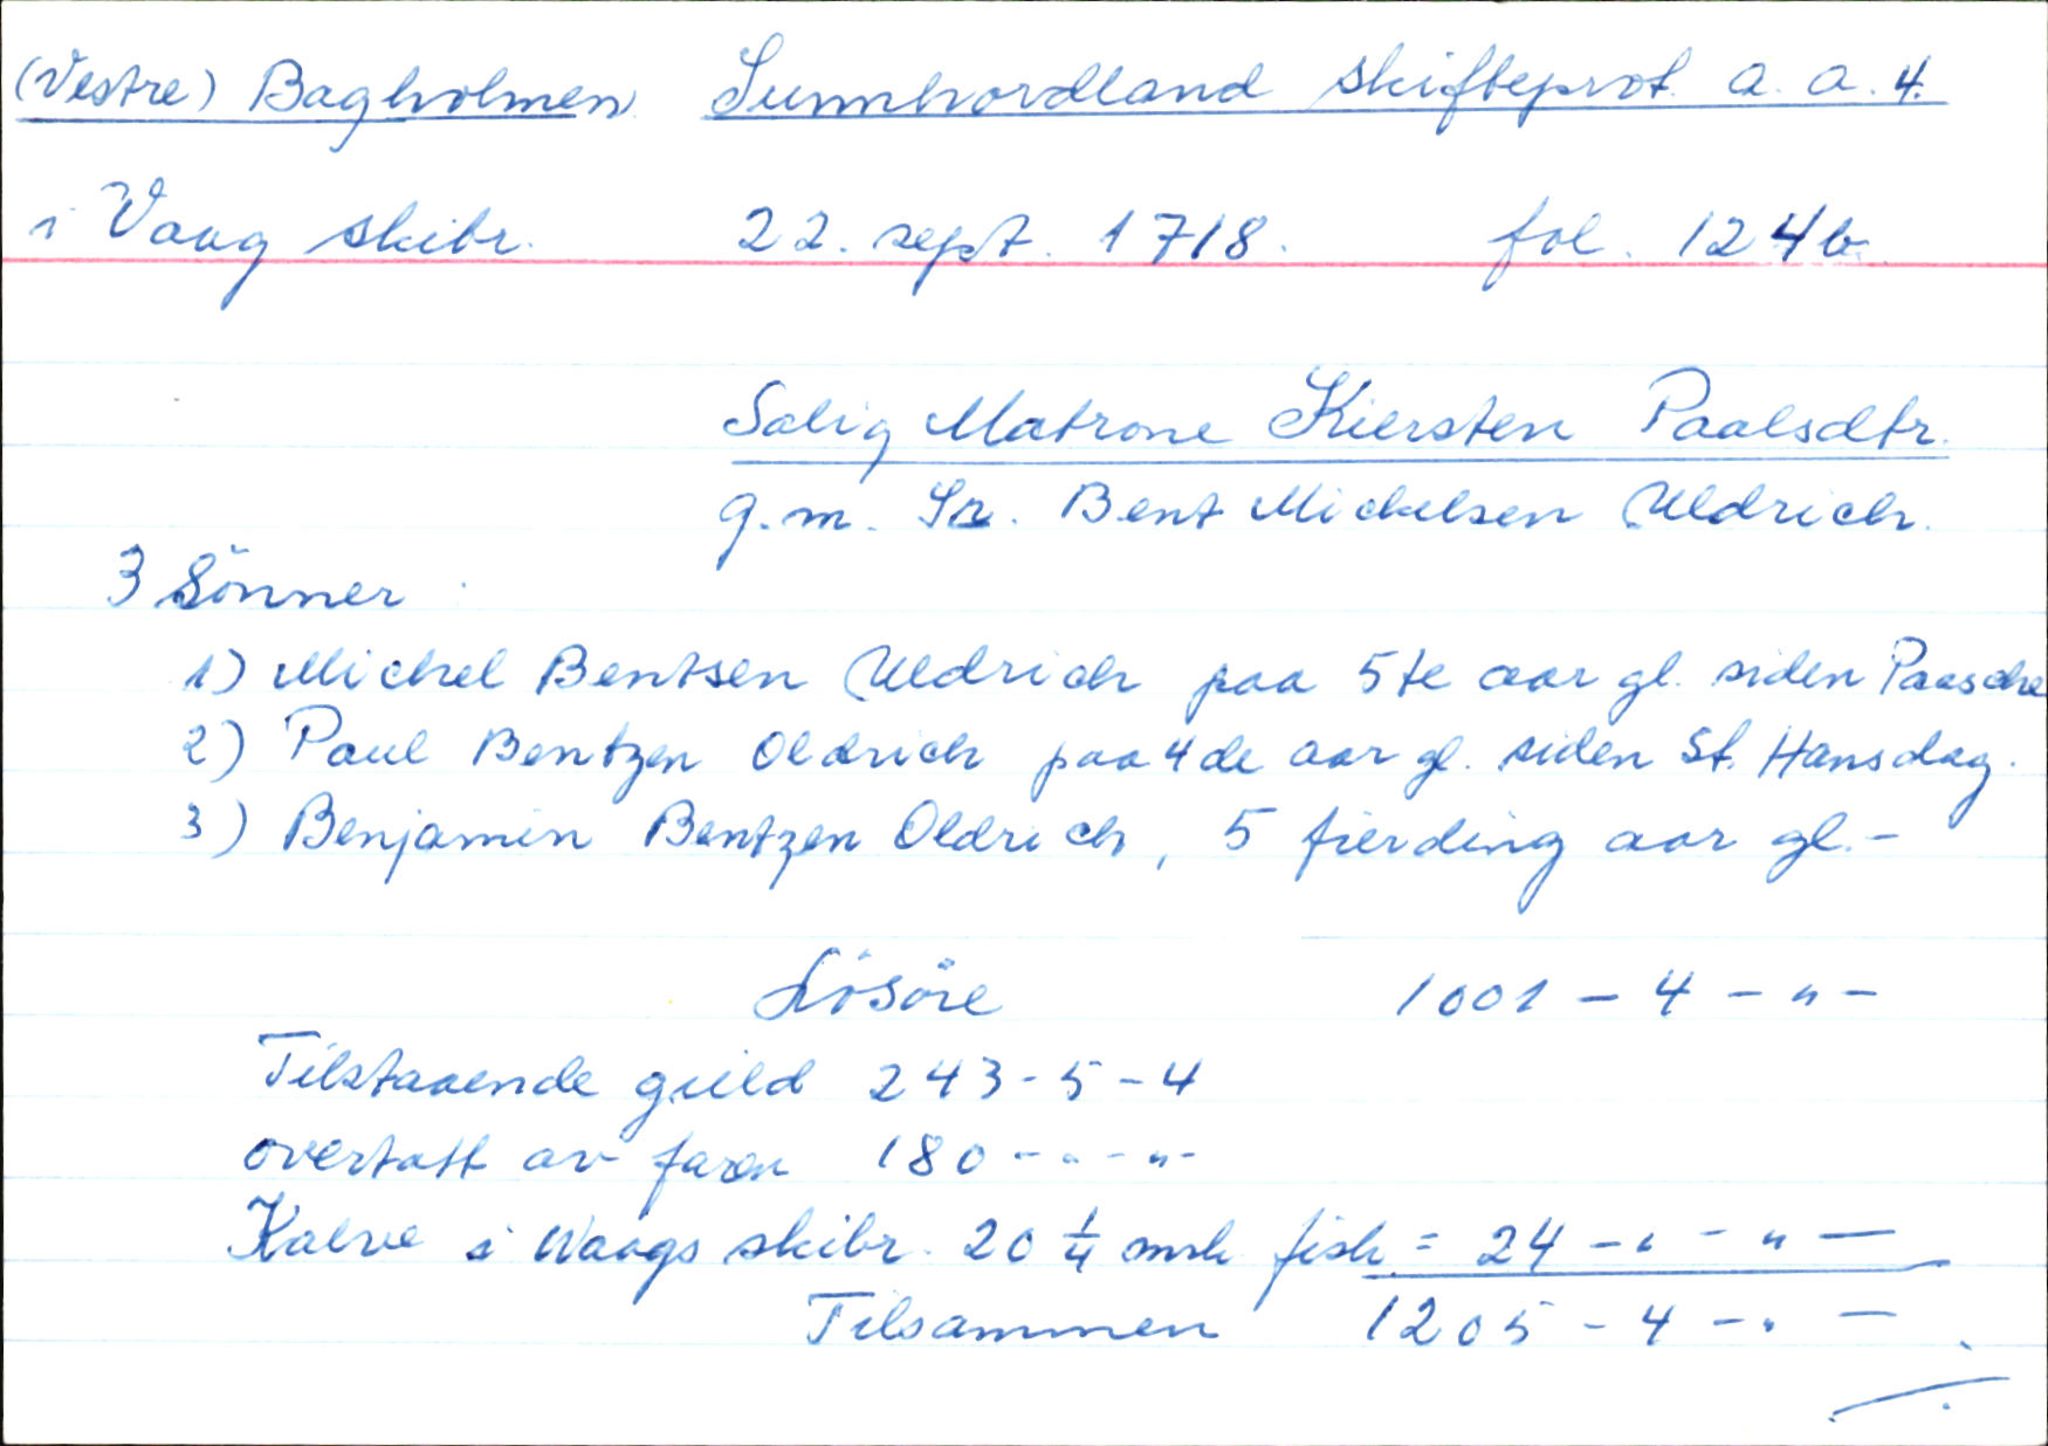 (Vestre) Bagholmen. Sunnhordland skifteprot. a. a. 4.
i Vaag skibr. 22. sept. 1718. fol. 124b.
Salig Matrone Kiersten Paalsdtr.
g.m. Sr. Bent Michelsen Uldrich.
3 Sönner
1) Michel Bentsen Uldrich paa 5te aar gl. siden Paasche
2) Paul Bentzen Oldrich paa 4de aar gl. siden St. Hansdag.
3) Benjamin Bentzen Oldrich, 5 fierding aar gl. -
Lösöre 1001 - 4 - " -
Tilstaaende gield 243 - 5 - 4
overtatt av faren 180 - " - " -
Kalve i Waags skibr. 20 1/4 mrk fisk = 24 - " - " -
Tilsammen 1205 - 4 - " -